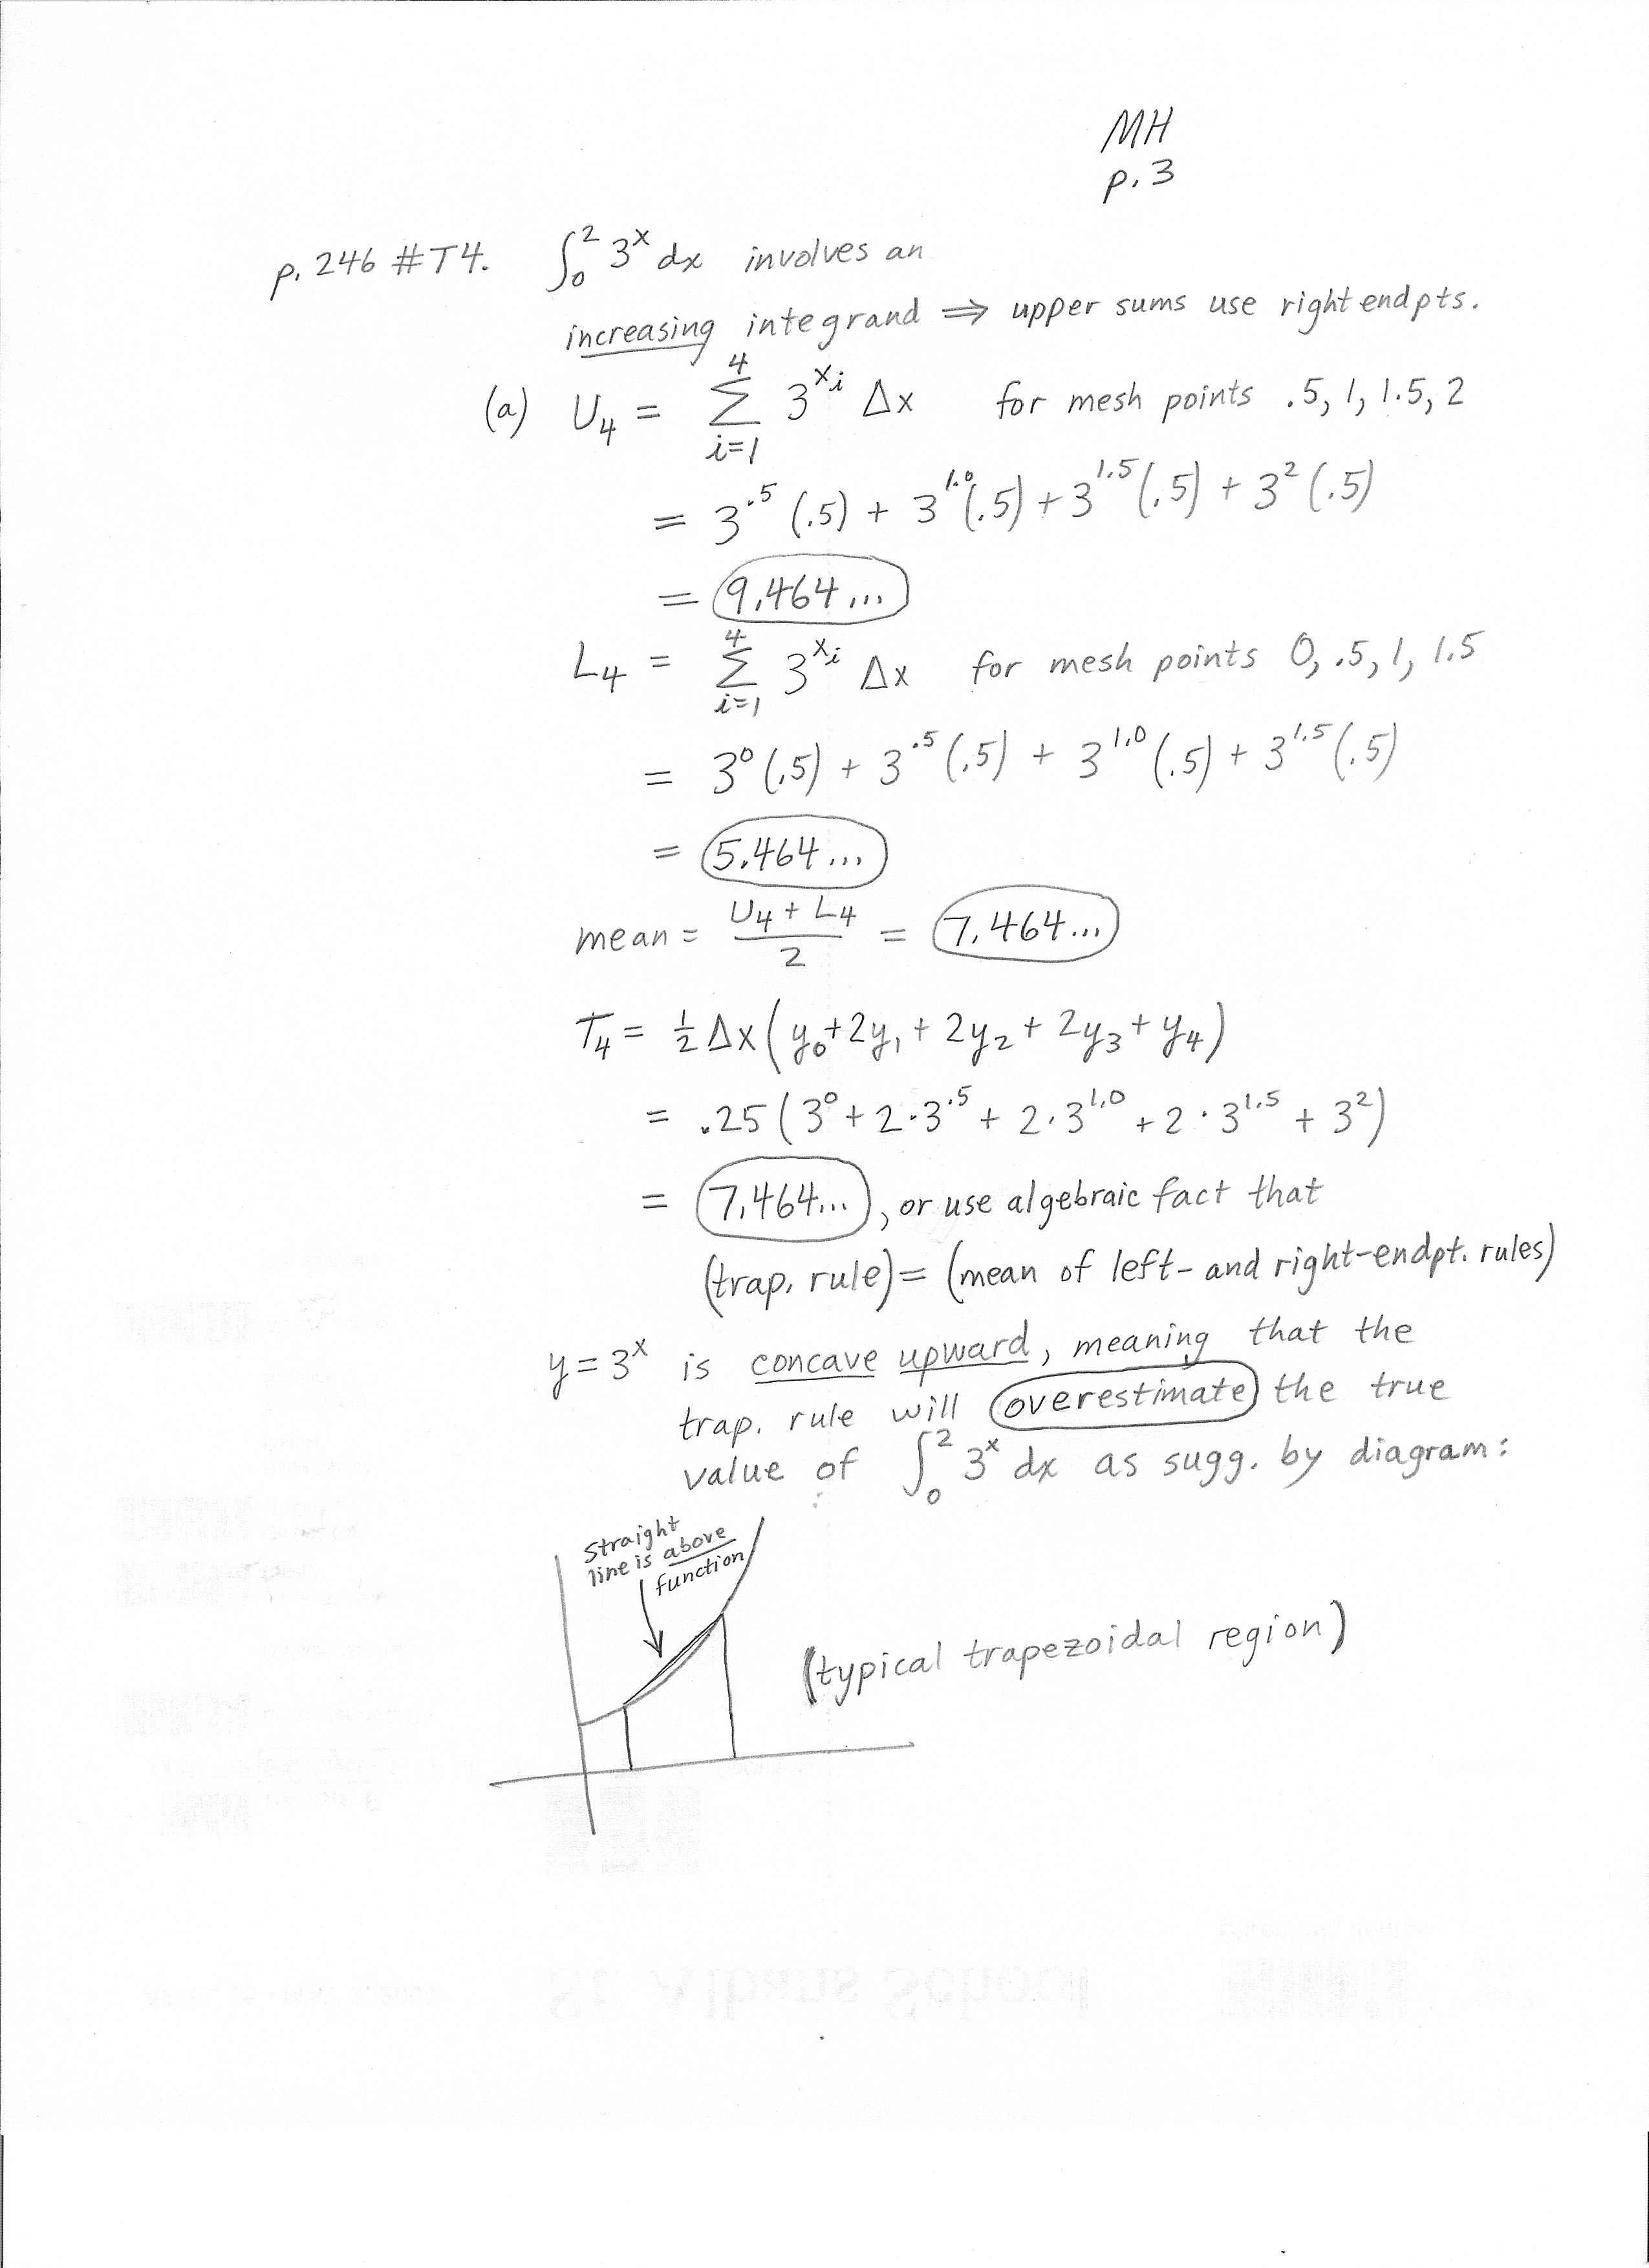 MH
p. 3
p. 246 #T4. ∫₀² 3ˣ dx involves an
increasing integrand ⇒ upper sums use right endpts.
(a) U₄ = Σ_{i=1}^{4} 3^{xᵢ} Δx for mesh points .5, 1, 1.5, 2
= 3^{.5} (.5) + 3^{1.0} (.5) + 3^{1.5} (.5) + 3² (.5)
= 9.464...
L₄ = Σ_{i=1}^{4} 3^{xᵢ} Δx for mesh points 0, .5, 1, 1.5
= 3⁰ (.5) + 3^{.5} (.5) + 3^{1.0} (.5) + 3^{1.5} (.5)
= 5.464...
mean = (U₄ + L₄)/2 = 7.464...
T₄ = ½ Δx (y₀ + 2y₁ + 2y₂ + 2y₃ + y₄)
= .25 (3⁰ + 2·3^{.5} + 2·3^{1.0} + 2·3^{1.5} + 3²)
= 7.464..., or use algebraic fact that
(trap. rule) = (mean of left- and right-endpt. rules)
y = 3ˣ is concave upward, meaning that the
trap. rule will overestimate the true
value of ∫₀² 3ˣ dx as sugg. by diagram:
straight
line is above
function
(typical trapezoidal region)
St. Albans School